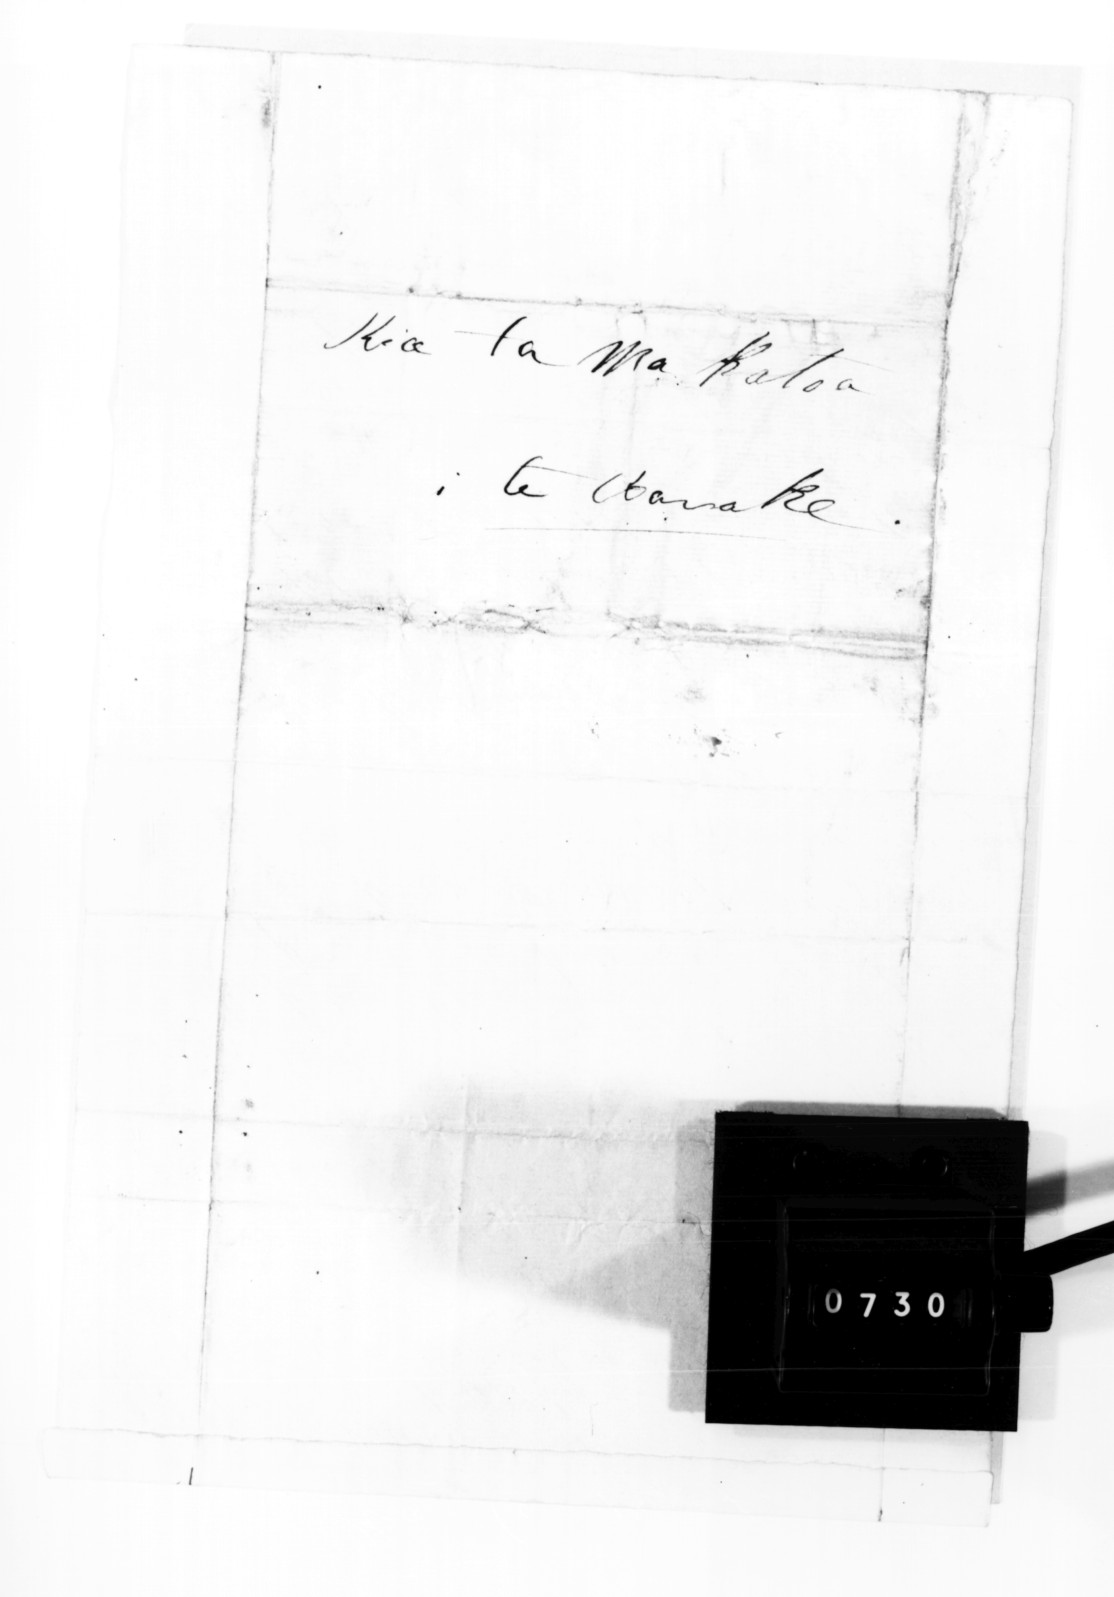 Kia ta Ma Katoa
i te Hanake.
0730